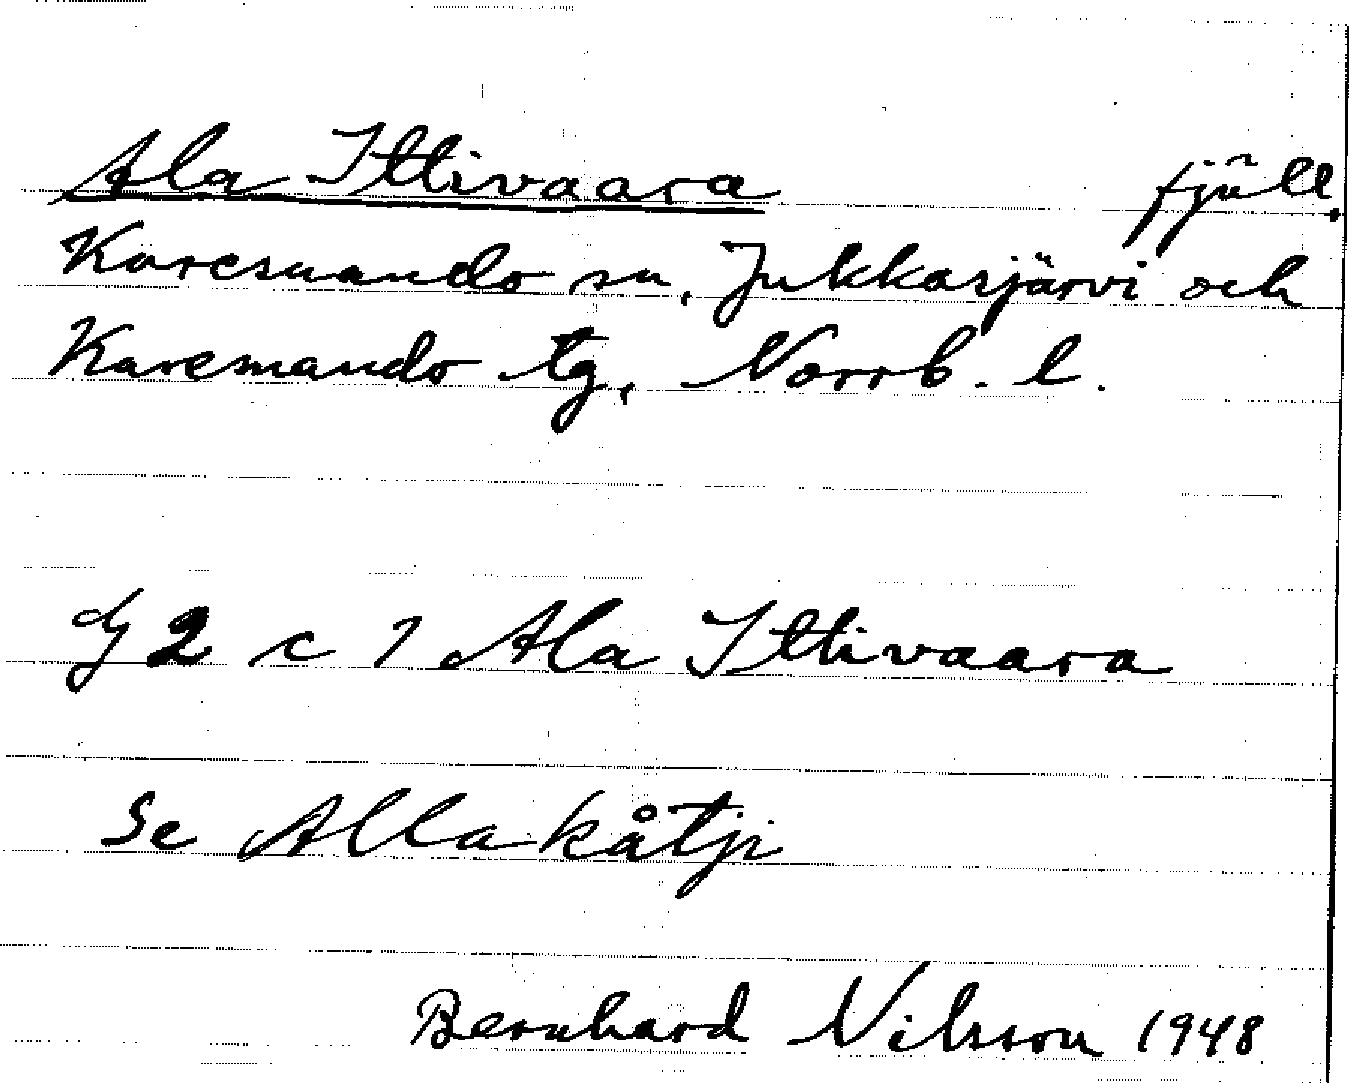 Ala Ittivaara fjäll.
Karesuando sn, Jukkasjärvi och
Karesuando tg, Norrb. l.
dj 2 c 7 Ala Ittivaara
Se Allakåtji
Bernhard Nilsson 1948